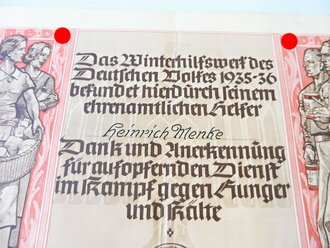 Das Winterhilfswerk des
Deutschen Volkes 1935-36
bekundet hierdurch seinem
ehrenamtlichen Helfer
Heinrich Menke
Dank und Anerkennung
für aufopfernden Dienst
im Kampf gegen Hunger
und Kälte